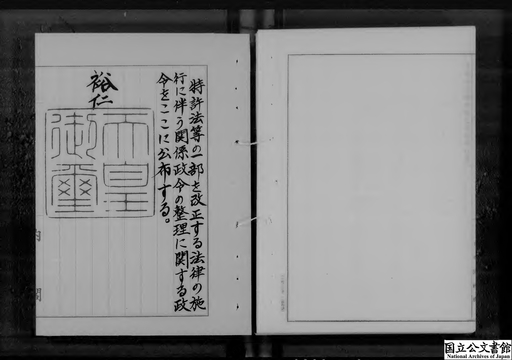 特許法等の一部を改正する法律の施
行に伴う関係政令の整理に関する政
令をここに公布する。
裕仁
天皇
御璽
内閣
国立公文書館
National Archives of Japan